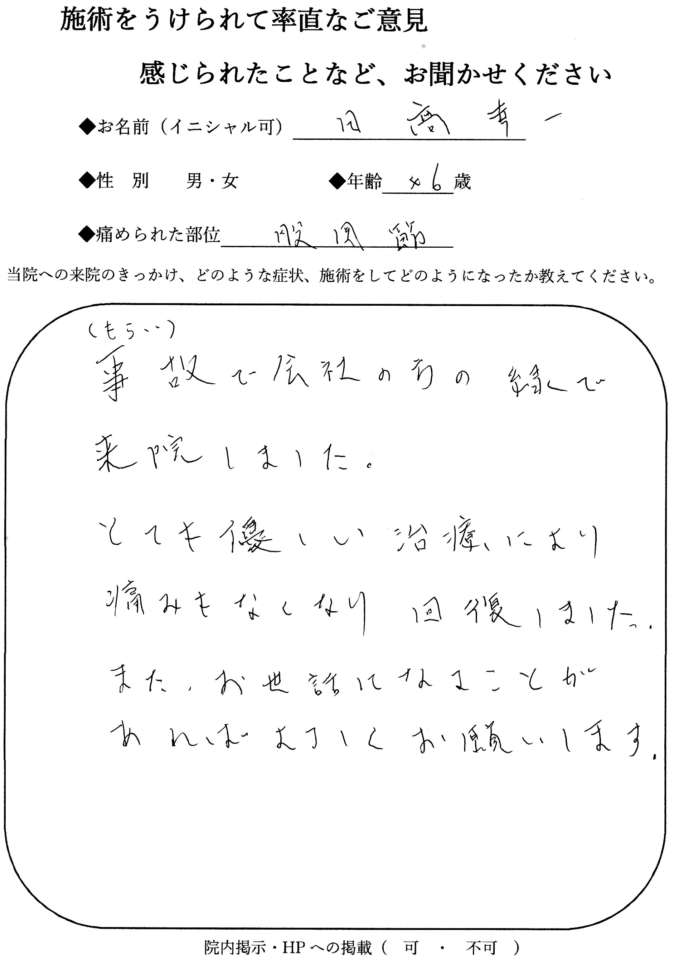 施術をうけられて率直なご意見
感じられたことなど、お聞かせください
◆お名前（イニシャル可） 日高幸一
◆性 別 男・女 ◆年齢 46歳
◆痛められた部位 股関節
当院への来院のきっかけ、どのような症状、施術をしてどのようになったか教えてください。
(もらい)
事故で会社の方の縁で
来院しました。
とても優しい治療により
痛みもなくなり回復しました。
また、お世話になることが
あればよろしくお願いします。
院内掲示・HPへの掲載（ 可 ・ 不可 ）